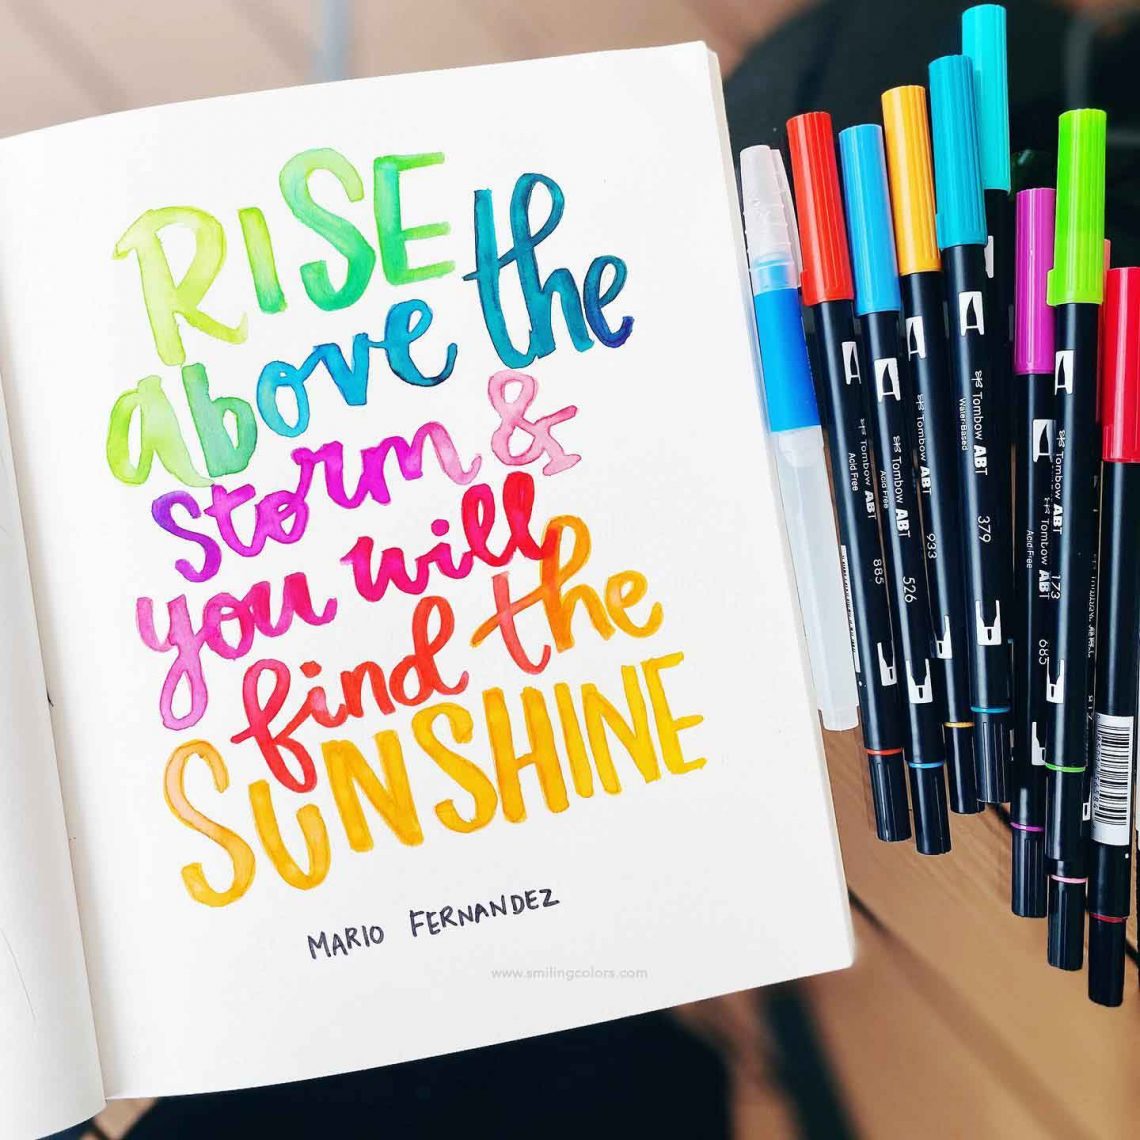 RISE
above the
storm &
you will
find the
SUNSHINE
MARIO FERNANDEZ
www.smilingcolors.com
Tombow ABT
Acid Free
885
Tombow ABT
Acid Free
526
Tombow ABT
933
Tombow ABT
Water-Based
379
Tombow ABT
Acid-Free
685
Tombow ABT
173